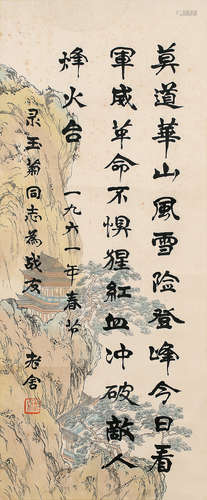 莫道華山風雪险登峰今日看
軍威革命不惧猩紅血冲破敵人
烽火台 一九六一年春节
录玉萧同志為战友
老舍